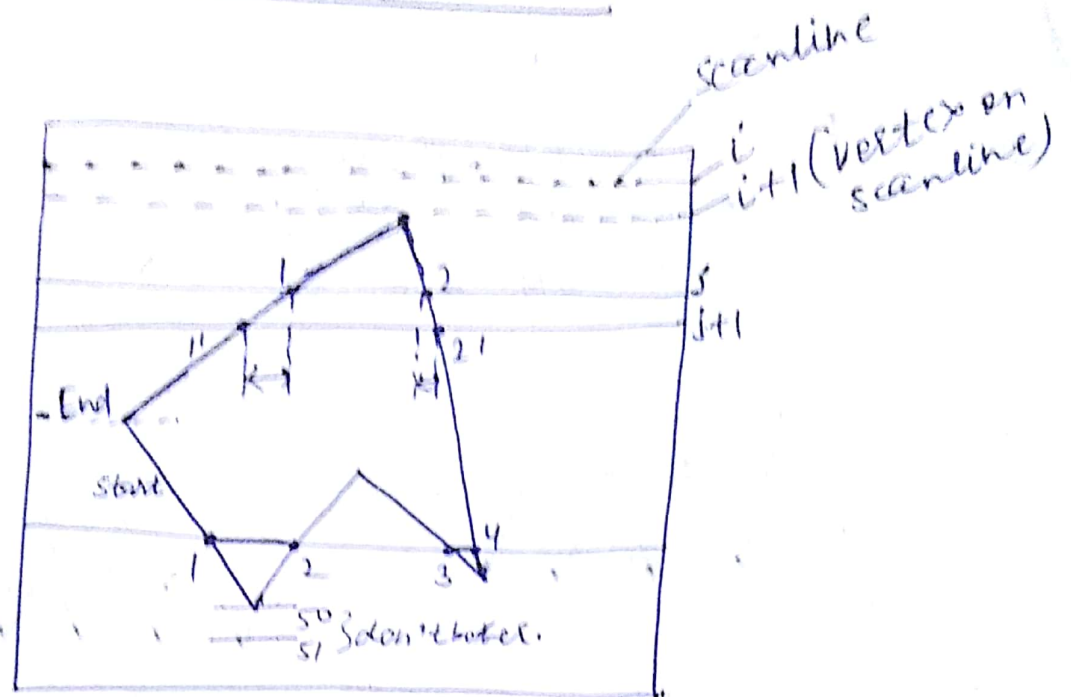 scanline
i
i+1 (vertex on
scanline)
1
2
j
j+1
1'
2'
End
Start
1
2
3
4
50
51
} don't bother.